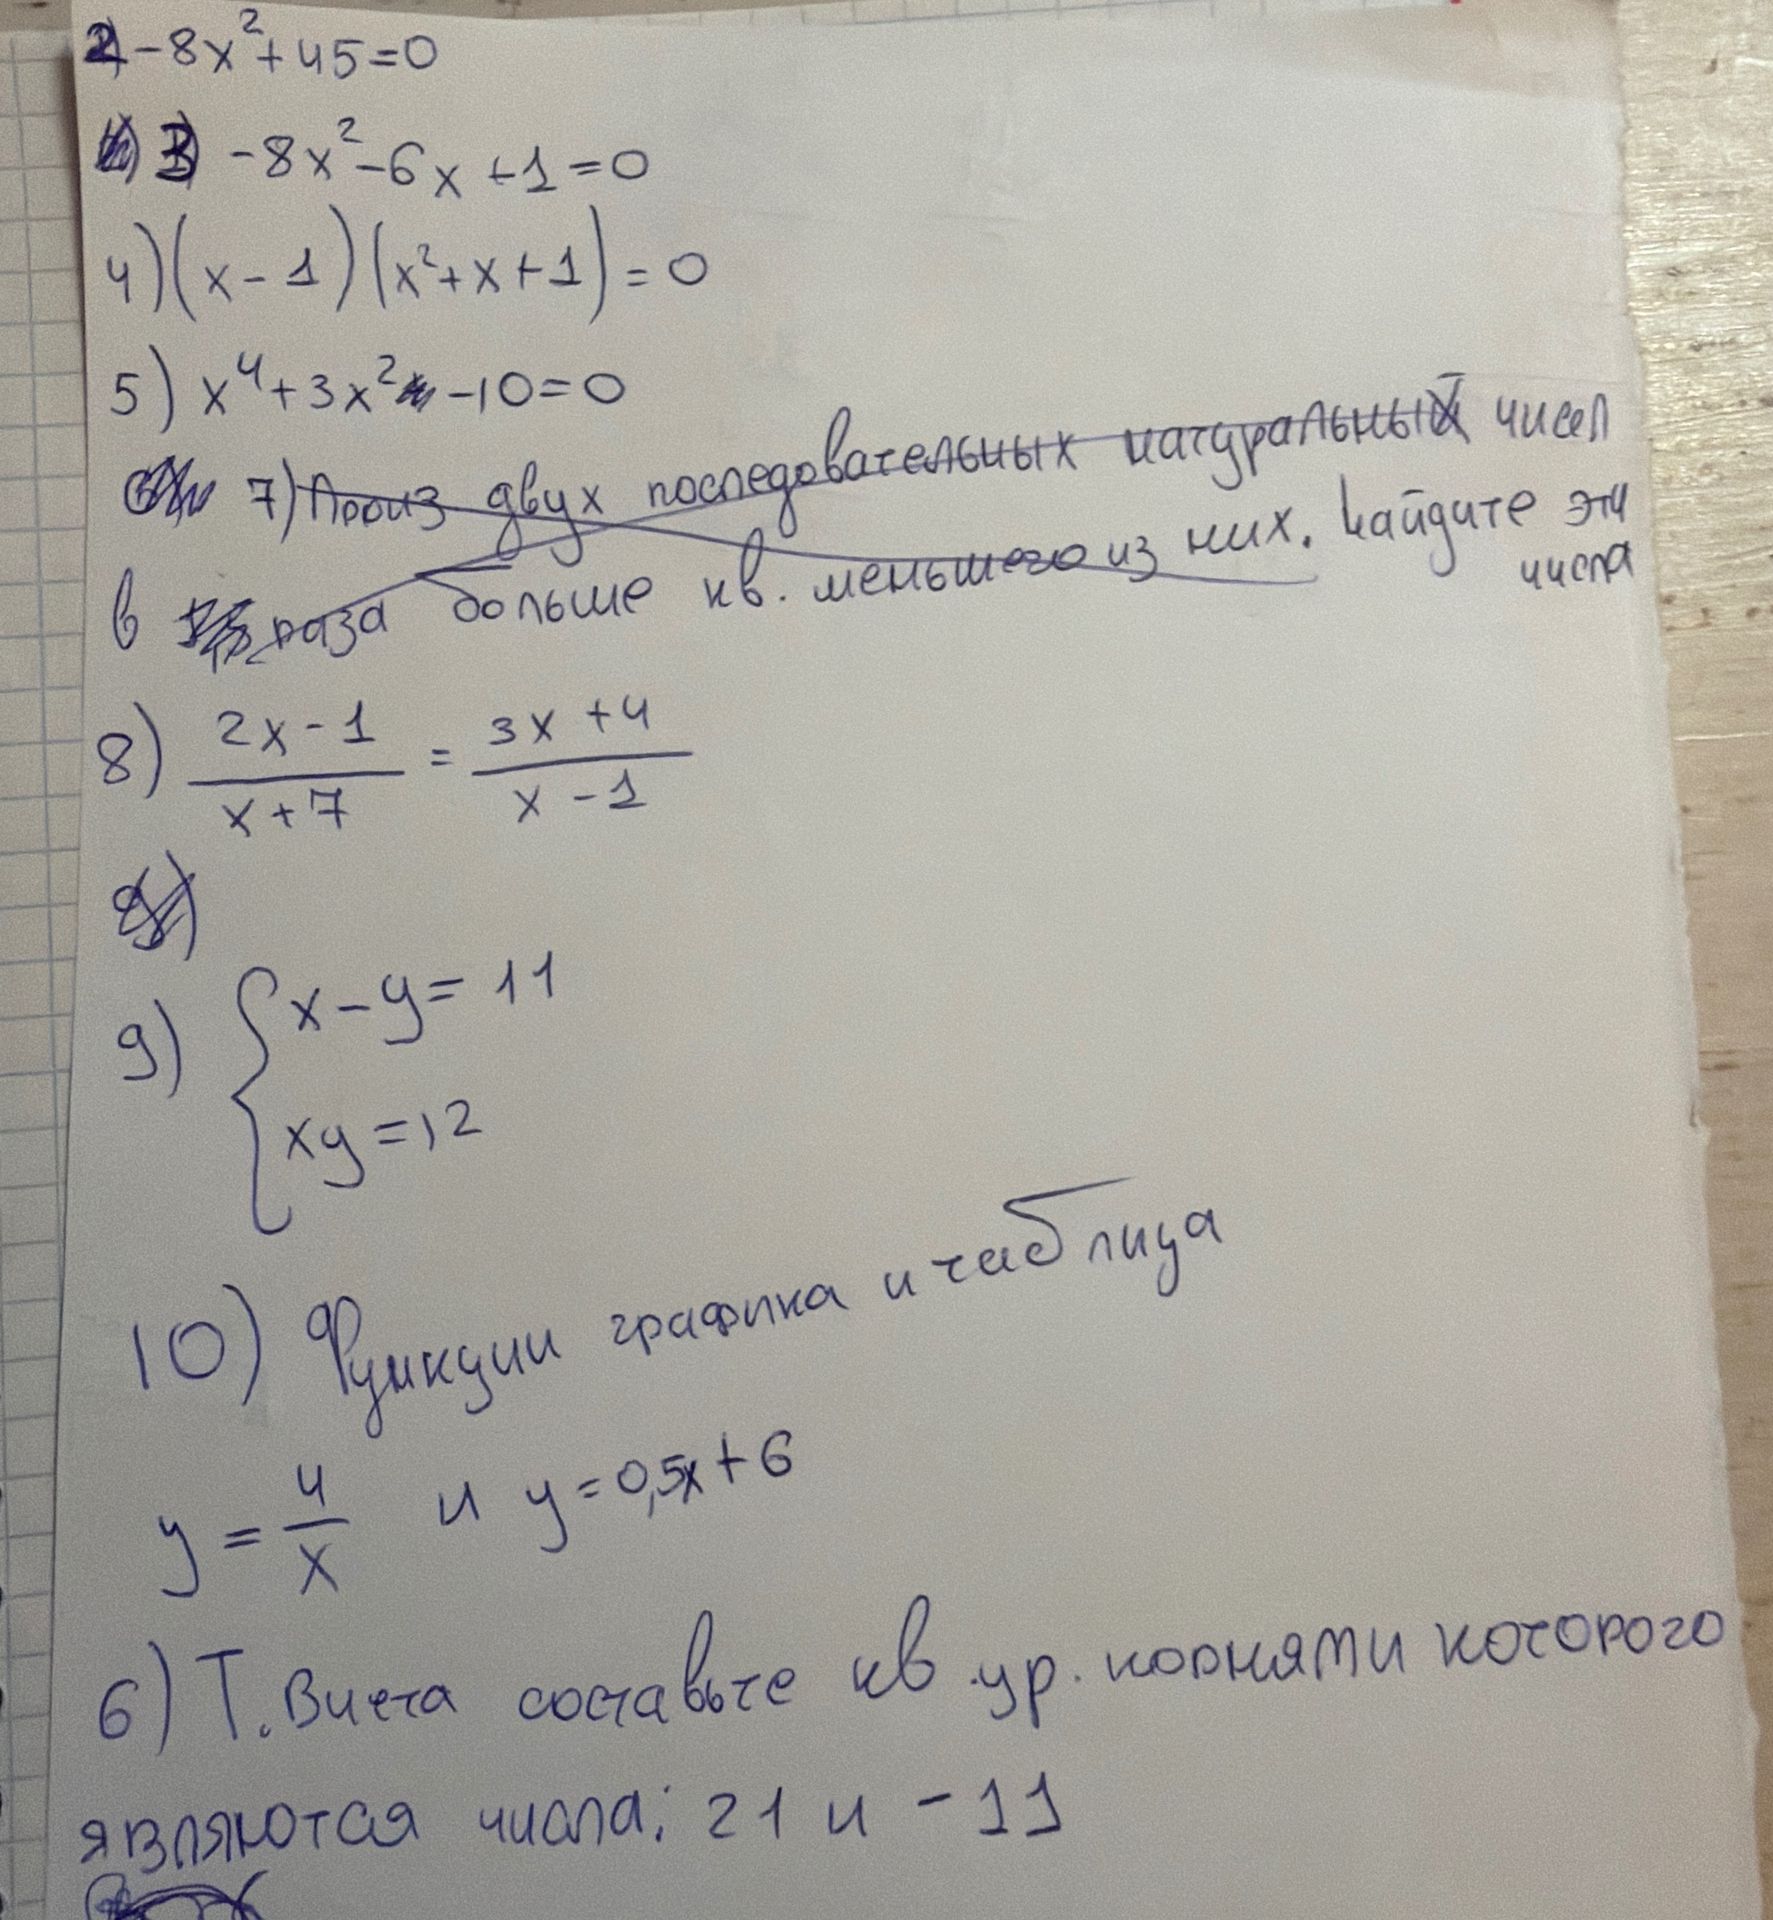 2) -8x²+45=0
3) -8x²-6x+1=0
4) (x-1)(x²+x+1)=0
5) x⁴+3x²-10=0
7) Произ двух последовательных натуральных чисел
в раза больше кв. меньшего из них. Найдите эти
числа
8) (2x-1)/(x+7) = (3x+4)/(x-1)
9) { x-y=11
xy=12
10) Функции графика и таблица
y=4/x и y=0,5x+6
6) Т. Виета составьте кв. ур. корнями которого
являются числа: 21 и -11